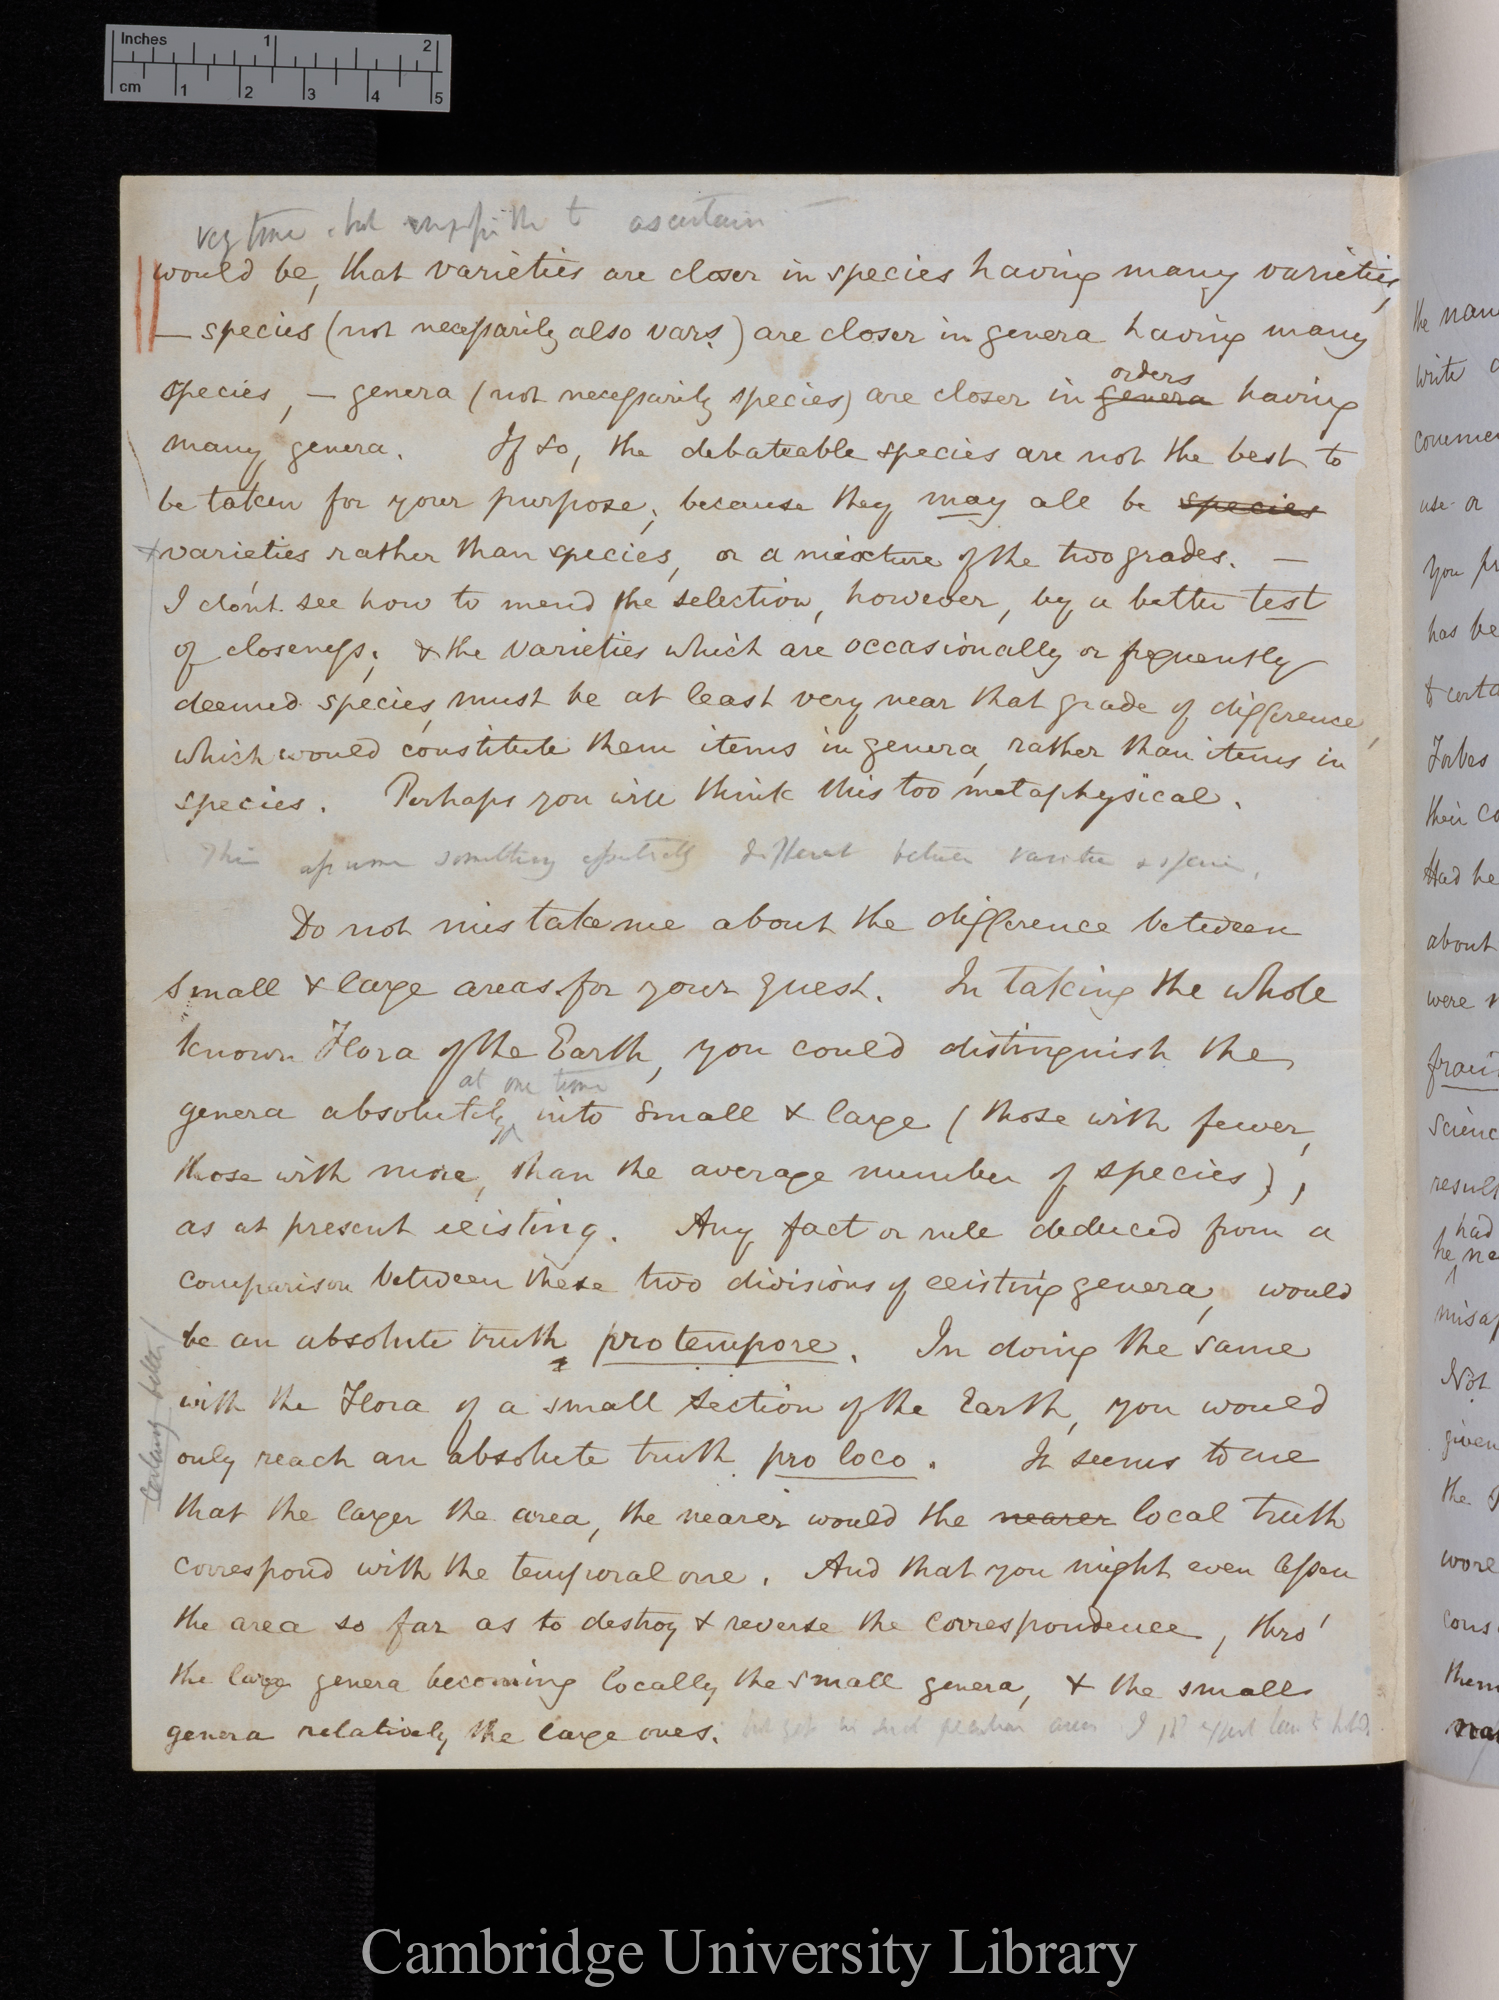 Inches 1 2
cm 1 2 3 4 5
very true, but impossible to ascertain
would be, that varieties are closer in species having many varieties,
— species (not necessarily also vars.) are closer in genera having many
species, — genera (not necessarily species) are closer in genera orders having
many genera. If so, the debateable species are not the best to
be taken for your purpose; because they may all be species
varieties rather than species, or a mixture of the two grades. —
I don't see how to mend the selection, however, by a better test
of closeness; & the varieties which are occasionally or frequently
deemed species, must be at least very near that grade of difference,
which would constitute them items in genera, rather than items in
species. Perhaps you will think this too metaphysical.
This assumes something essentially different between varieties & species.
Do not mistake me about the difference between
small & large areas for your quest. In taking the whole
known Flora of the Earth, you could distinguish the
at one time
genera absolutely into small & large (those with fewer,
those with more, than the average number of species),
as at present existing. Any fact or rule deduced from a
comparison between these two divisions of existing genera, would
be an absolute truth pro tempore. In doing the same
with the Flora of a small section of the Earth, you would
only reach an absolute truth pro loco. It seems to me
that the larger the area, the nearer would the nearer local truth
correspond with the temporal one. And that you might even lessen
the area so far as to destroy & reverse the correspondence, thro'
the large genera becoming locally the small genera, & the small
genera relatively the large ones. but yet in such peculiar areas I expect law to hold.
the nam
write
commen
use or
You pr
has be
Forbes
their co
Had he
about
were
scienc
result
had
he ne
misap
Not
given
the
wore
cons
them
Cambridge University Library